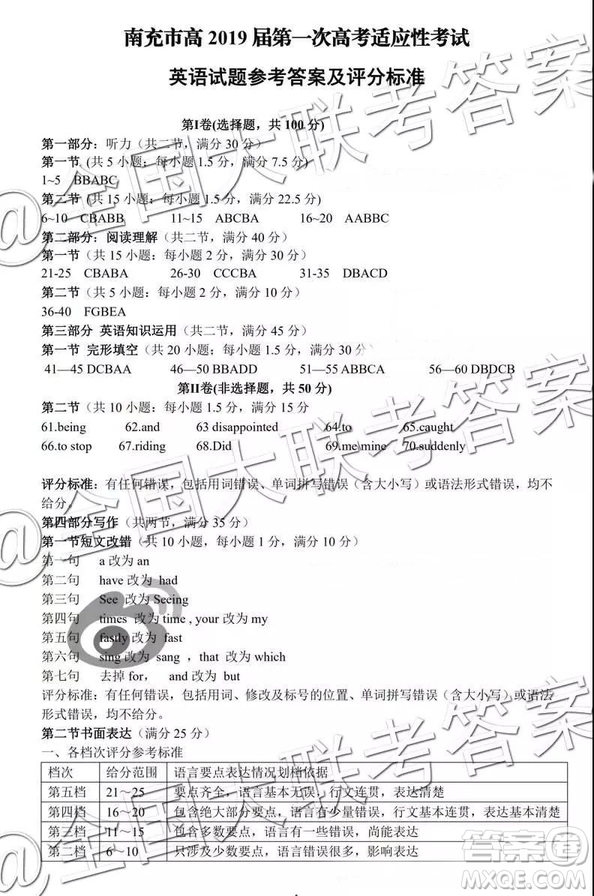 南充市高 2019 届第一次高考适应性考试
英语试题参考答案及评分标准
第I卷(选择题，共 100 分)
第一部分：听力（共二节，满分 30 分）
第一节 (共 5 小题；每小题 1.5 分，满分 7.5 分)
1~5 BBABC
第二节 (共 15 小题；每小题 1.5 分，满分 22.5 分)
6~10 CBABB 11~15 ABCBA 16~20 AABBC
第二部分：阅读理解（共二节，满分 40 分）
第一节（共 15 小题；每小题 2 分，满分 30 分）
21-25 CBABA 26-30 CCCBA 31-35 DBACD
第二节（共 5 小题；每小题 2 分，满分 10 分）
36-40 FGBEA
第三部分 英语知识运用（共二节，满分 45 分）
第一节 完形填空（共 20 小题；每小题 1.5 分，满分 30 分）
41—45 DCBAA 46—50 BBADD 51—55 ABBCA 56—60 DBDCB
第II卷(非选择题，共 50 分)
第二节（共 10 小题；每小题 1.5 分，满分 15 分
61.being 62.and 63 disappointed 64.to 65.caught
66.to stop 67.riding 68.Did 69.me\mine 70.suddenly
评分标准：有任何错误，包括用词错误、单词拼写错误（含大小写）或语法形式错误，均不
给分。
第四部分写作（共两节，满分 35 分）
第一节短文改错（共 10 小题，每小题 1 分，满分 10 分）
第一句 a 改为 an
第二句 have 改为 had
第三句 See 改为 Seeing
第四句 times 改为 time , your 改为 my
第五句 fastly 改为 fast
第六句 sing 改为 sang ，that 改为 which
第七句 去掉 for， and 改为 but
评分标准：有任何错误，包括用词、修改及标号的位置、单词拼写错误（含大小写）或语法
形式错误，均不给分。
第二节书面表达（满分 25 分）
一、各档次评分参考标准
档次 给分范围 语言要点表达情况划档依据
第五档 21～25 要点齐全，语言基本无误，行文连贯，表达清楚
第四档 16～20 包含绝大部分要点，语言有少量错误，行文基本连贯，表达基本清楚
第三档 11～15 包含多数要点，语言有一些错误，尚能表达
第二档 6～10 只涉及少数要点，语言错误很多，影响表达
@全国大联考答案
@全国大联考答案
@全国大联考答案
答案圈
MXQE.COM